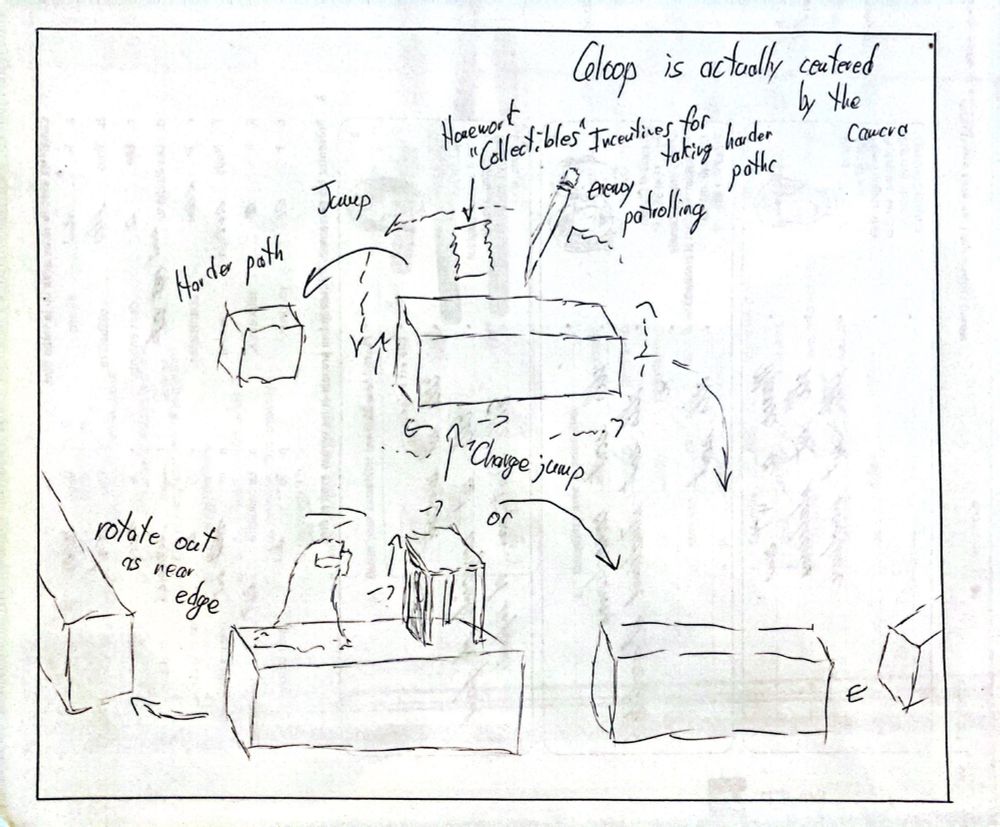 Gloop is actually centered
by the
camera
Homework
"Collectibles" Incentives for
taking harder
paths
enemy
patrolling
Jump
Harder path
Charge jump
or
rotate out
as near
edge